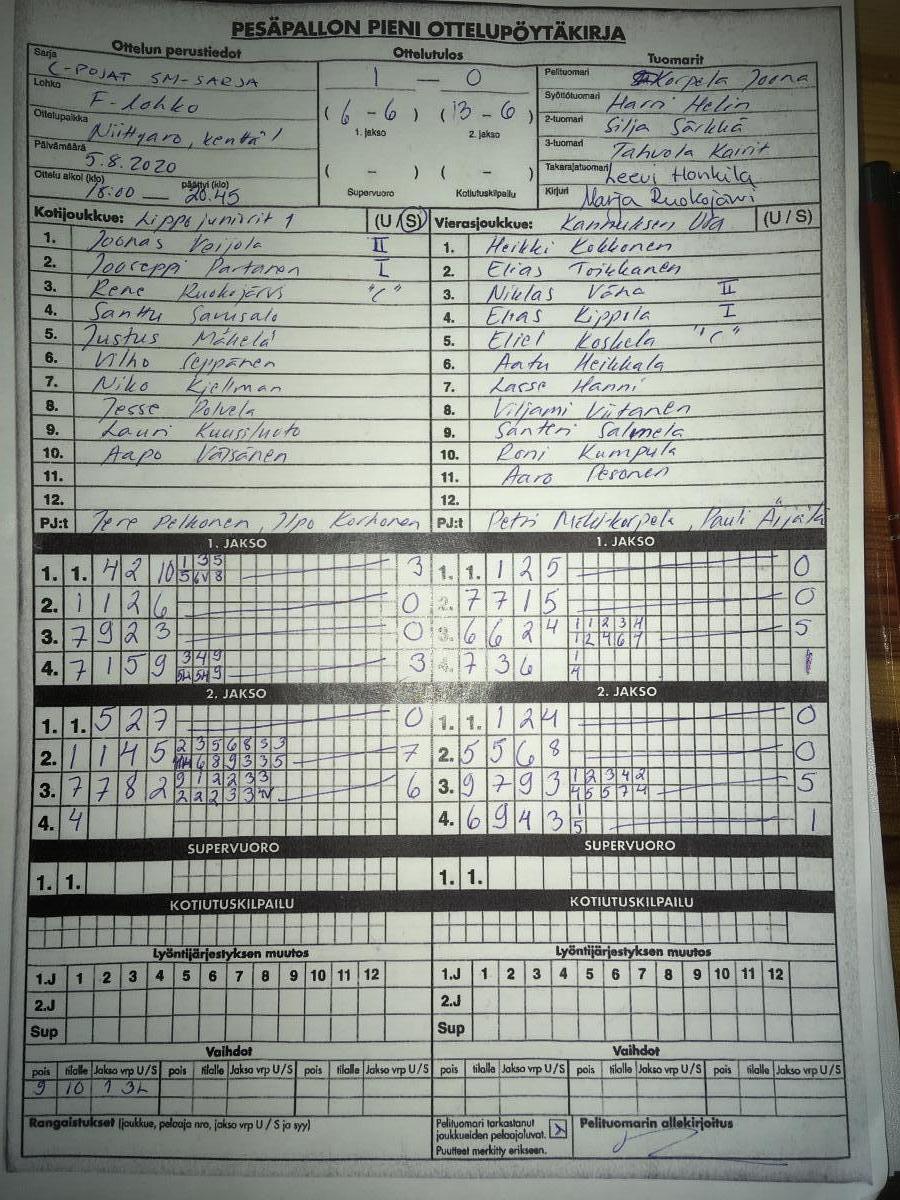 PESÄPALLON PIENI OTTELUPÖYTÄKIRJA
Ottelun perustiedot
Sarja C-POJAT SM-SARJA
Lohko F-lohko
Ottelupaikka Niittyaro, kenttä 1
Päivämäärä 5.8.2020
Ottelu alkoi (klo) 18:00 — päättyi (klo) 20.45
Ottelutulos
1 — 0
( 6 - 6 ) ( 13 - 6 )
1. jakso 2. jakso
( - ) ( - )
Supervuoro Kotiutuskilpailu
Tuomarit
Pelituomari Korpela Joona
Syöttötuomari Harri Helin
2-tuomari Silja Särkkä
3-tuomari Tahvola
Takarajatuomari Leevi Honkila
Kirjuri Marja Ruokojärvi
Kotijoukkue: Lippo juniorit 1 (U/S)
1. Joonas Veijola II
2. Jooseppi Partanen I
3. Rene Ruokojärvi "C"
4. Santtu
5. Justus Mäkelä
6. Vilho Seppänen
7. Niko Kjellman
8. Jesse Polvela
9. Lauri Kuusiluoto
10. Aapo Väisänen
11.
12.
PJ:t Jere Pelkonen, Ilpo Korhonen
Vierasjoukkue: Kannuksen Ura (U/S)
1. Heikki Kokkonen
2. Elias Toikkanen
3. Niklas Vähä II
4. Elias Kippola I
5. Eliel Koskela "C"
6. Aatu Heikkala
7. Lasse Hanni
8. Viljami Viitanen
9. Santeri Salmela
10. Roni Kumpula
11. Aaro Pesonen
12.
PJ:t Petri Mäkikorpela, Pauli Äijälä
1. JAKSO
1. 1. 4 2 10 1 3 5 3
5 6V 8
2. 1 1 2 6 0
3. 7 9 2 3 0
4. 7 1 5 9 3 4 9 3
1. JAKSO
1. 1. 1 2 5 0
2. 7 7 1 5 0
3. 6 6 2 4 1 1 2 3 4 5
1 2 4 6 7
4. 7 3 6 1 1
4
2. JAKSO
1. 1. 5 2 7 0
2. 1 1 4 5 2 3 5 6 8 3 3 7
3. 7 7 8 2 9 1 2 2 3 3 6
4. 4
2. JAKSO
1. 1. 1 2 4 0
2. 5 5 6 8 0
3. 9 7 9 3 1 2 3 4 2 5
4 5 5 7 4
4. 6 9 4 3 1 1
5
SUPERVUORO
1. 1.
SUPERVUORO
1. 1.
KOTIUTUSKILPAILU
KOTIUTUSKILPAILU
Lyöntijärjestyksen muutos
1.J 1 2 3 4 5 6 7 8 9 10 11 12
2.J
Sup
Lyöntijärjestyksen muutos
1.J 1 2 3 4 5 6 7 8 9 10 11 12
2.J
Sup
Vaihdot
pois tilalle Jakso vrp U/S pois tilalle Jakso vrp U/S pois tilalle Jakso vrp U/S
9 10 1 3L
Vaihdot
pois tilalle Jakso vrp U/S pois tilalle Jakso vrp U/S pois tilalle Jakso vrp U/S
Rangaistukset (joukkue, pelaaja nro, jakso vrp U / S ja syy)
Pelituomari tarkastanut
joukkueiden pelaajaluvat. X
Puutteet merkitty erikseen.
Pelituomarin allekirjoitus